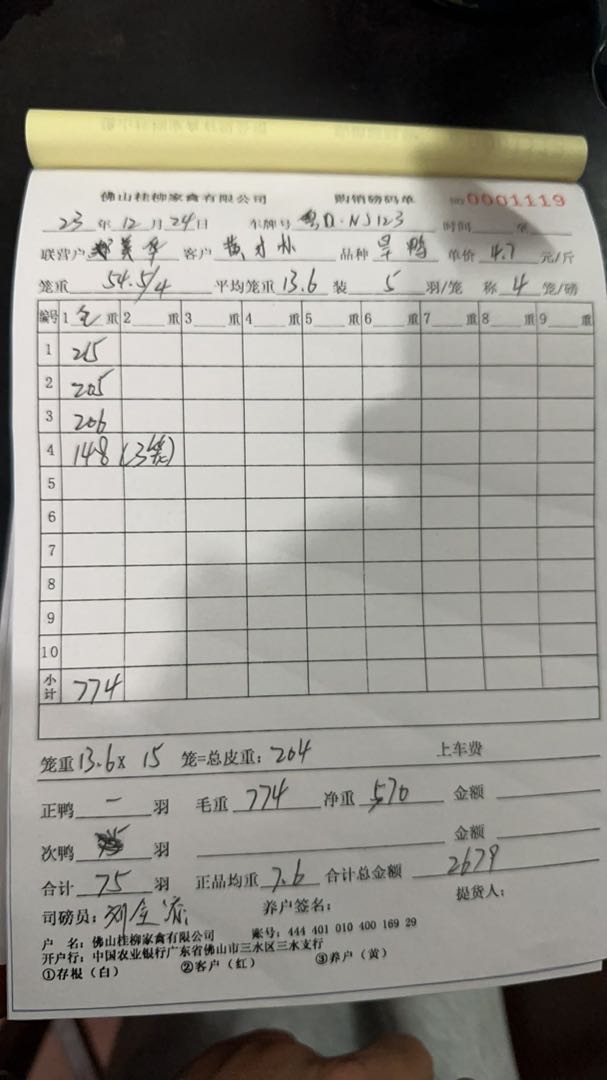 佛山桂柳家禽有限公司 购销磅码单 №0001119
23 年 12 月 24 日 车牌号 粤Q·NJ123 时间
联营户 英华 客户 黄才林 品种 旱鸭 单价 4.7 元/斤
笼重 54.5/4 平均笼重 13.6 装 5 羽/笼 称 4 笼/磅
编号 1 毛 重 2 重 3 重 4 重 5 重 6 重 7 重 8 重 9 重
1 215
2 205
3 206
4 148 (3笼)
5
6
7
8
9
10
小计 774
笼重 13.6 x 15 笼=总皮重: 204 上车费
正鸭 一 羽 毛重 774 净重 570 金额
次鸭 羽 金额
合计 75 羽 正品均重 7.6 合计总金额 2679
司磅员: 养户签名: 提货人:
户 名: 佛山桂柳家禽有限公司 账号: 444 401 010 400 169 29
开户行: 中国农业银行广东省佛山市三水区三水支行
①存根（白） ②客户（红） ③养户（黄）